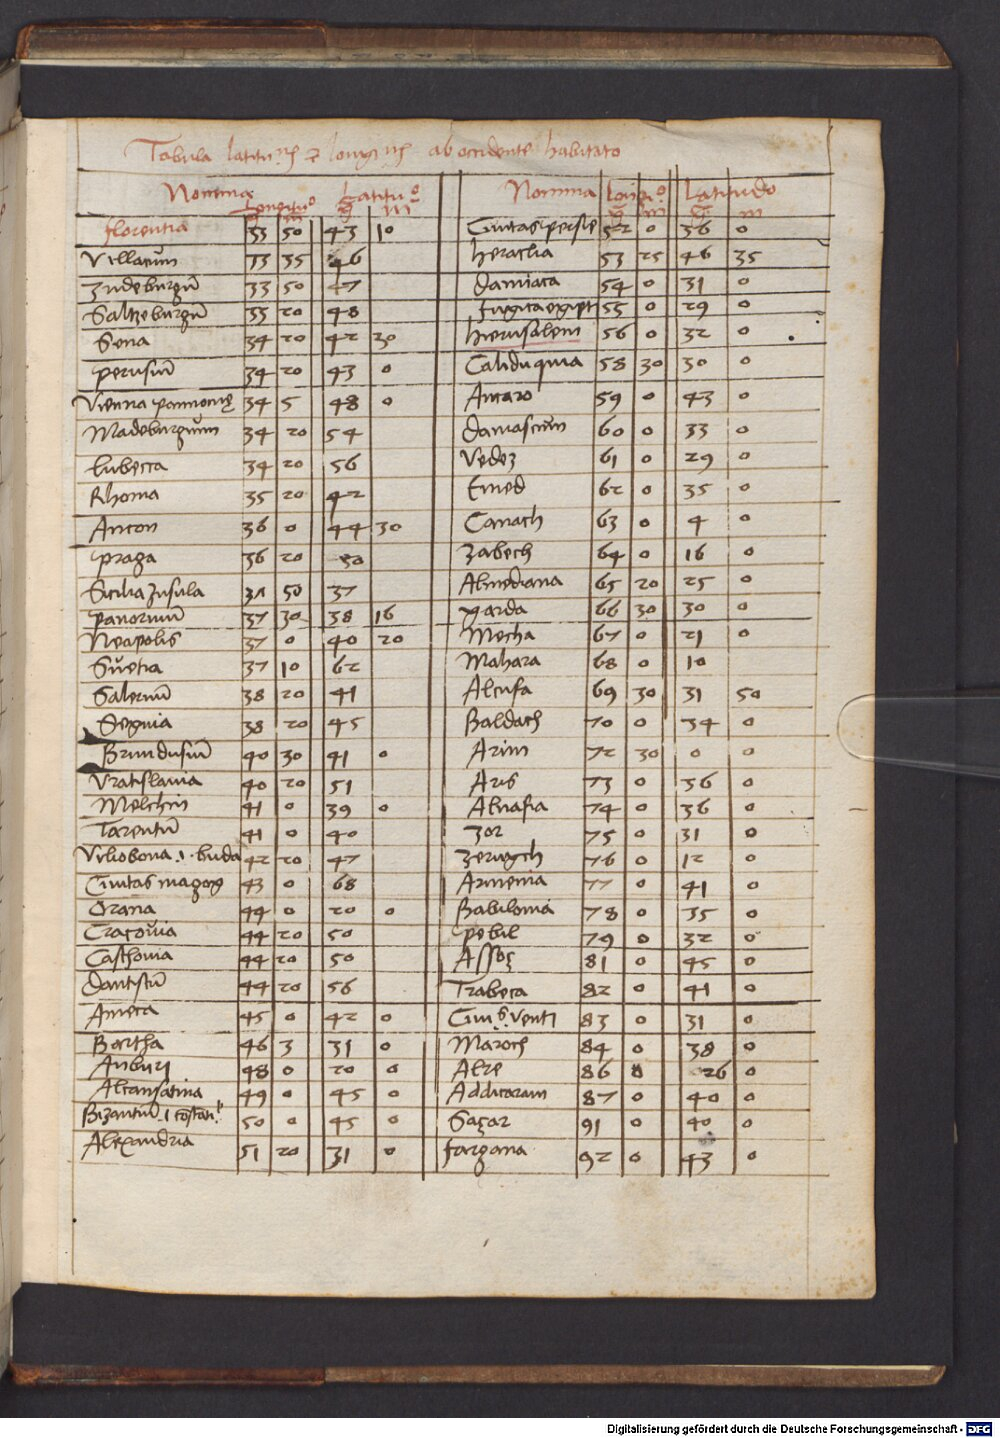 Tabula latitu⁓ ⁊ longi⁓ ab occidente habitato
Nomina Longitu° Latitu° Nomina Longi° Latitudo
g m g m g m g m
florentia 33 50 43 10 Ciuitas persie 52 0 36 0
Villacum 33 35 46 heraclia 53 25 46 35
Judeburgū 33 50 47 Damiata 54 0 31 0
Saltzeburgū 33 20 48 fugita egipti 55 0 29 0
Sena 34 20 42 20 hierusalem 56 0 32 0
perusiū 34 20 43 0 Caliduquia 58 30 30 0
Vienna pannonię 34 5 48 0 Ancaro 59 0 43 0
Madeburgum 34 20 54 Damascum 60 0 33 0
lubecca 34 20 56 Vedez 61 0 29 0
Rhoma 35 20 42 Emed 62 0 35 0
Ancon 36 0 44 30 Canach 63 0 4 0
praga 36 20 50 Zabech 64 0 16 0
Sicilia Insula 37 50 37 Almediana 65 20 25 0
panormū 37 30 38 16 garda 66 30 30 0
Neapolis 37 0 40 20 Mecha 67 0 21 0
Suetia 37 10 62 Mahara 68 0 10
Salernū 38 20 41 Alcufa 69 30 31 50
Segnia 38 20 45 Baldach 70 0 34 0
Brundusiū 40 30 41 0 Arim 72 30 0 0
Vratislauia 40 20 51 Aris 73 0 36 0
Melchin 41 0 39 0 Alnafia 74 0 36 0
Tarentū 41 0 40 Zor 75 0 31 0
Viliobona .i. buda 42 20 47 Zerngch 76 0 12 0
Ciuitas magog 43 0 68 Armenia 77 0 41 0
Orana 44 0 20 0 Babilonia 78 0 35 0
Cracouia 44 20 50 pebil 79 0 32 0
Caschouia 44 20 50 Assoz 81 0 45 0
Dantscū 44 20 56 Trabeca 82 0 41 0
Ameca 45 0 42 0 Ciuis Venti 83 0 31 0
Bartha 46 3 31 0 Maroch 84 0 38 0
Anburi 48 0 20 0 Alre 86 0 26 0
Alcansatina 49 0 45 0 Addicoram 87 0 40 0
Bizantiū .i. costāti 50 0 45 0 Sagar 91 0 40 0
Alexandria 51 20 31 0 fargana 92 0 43 0
Digitalisierung gefördert durch die Deutsche Forschungsgemeinschaft - DFG